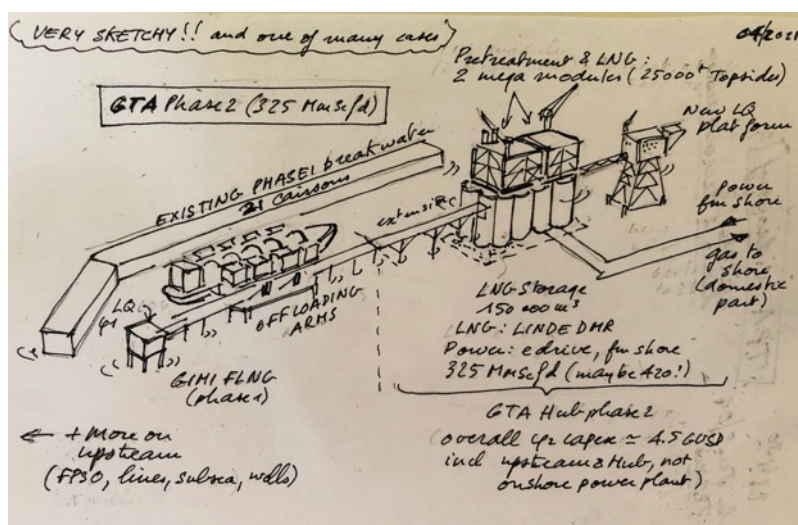 VERY SKETCHY!! and one of many cases
04/2021
Pretreatment & LNG:
2 mega modules (25000t Topsides)
GTA Phase 2 (325 Mmscfd)
New LQ
platform
EXISTING PHASE 1 breakwater
21 caissons
extension
Power
fm shore
gas to
shore
(domestic
part)
LQ
φ1
OFFLOADING
ARMS
GIMI FLNG
(phase 1)
LNG Storage
150 000 m³
LNG: LINDE DMR
Power: edrive, fm shore
325 Mmscfd (maybe 420!)
GTA Hub phase 2
overall φ2 capex ≃ 4.5 GUSD
incl upstream & Hub, not
onshore power plant)
← + More on
upstream
(FPSO, lines, subsea, wells)